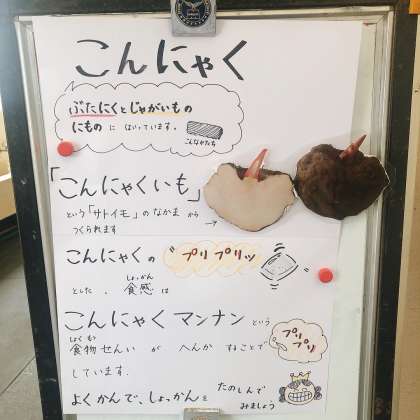 こんにゃく
ぶたにくとじゃがいもの
にもの に はいっています。
こんなかたち
「こんにゃくいも」
という「サトイモ」のなかま から
つくられます
こんにゃく の "プリプリッ"
とした、食感 は
しょっかん
こんにゃく マンナン という
しょくもつ
食物せんい が へんか することで
プリプリ
しています.
よくかんで、しょっかんを たのしんで
みましょう